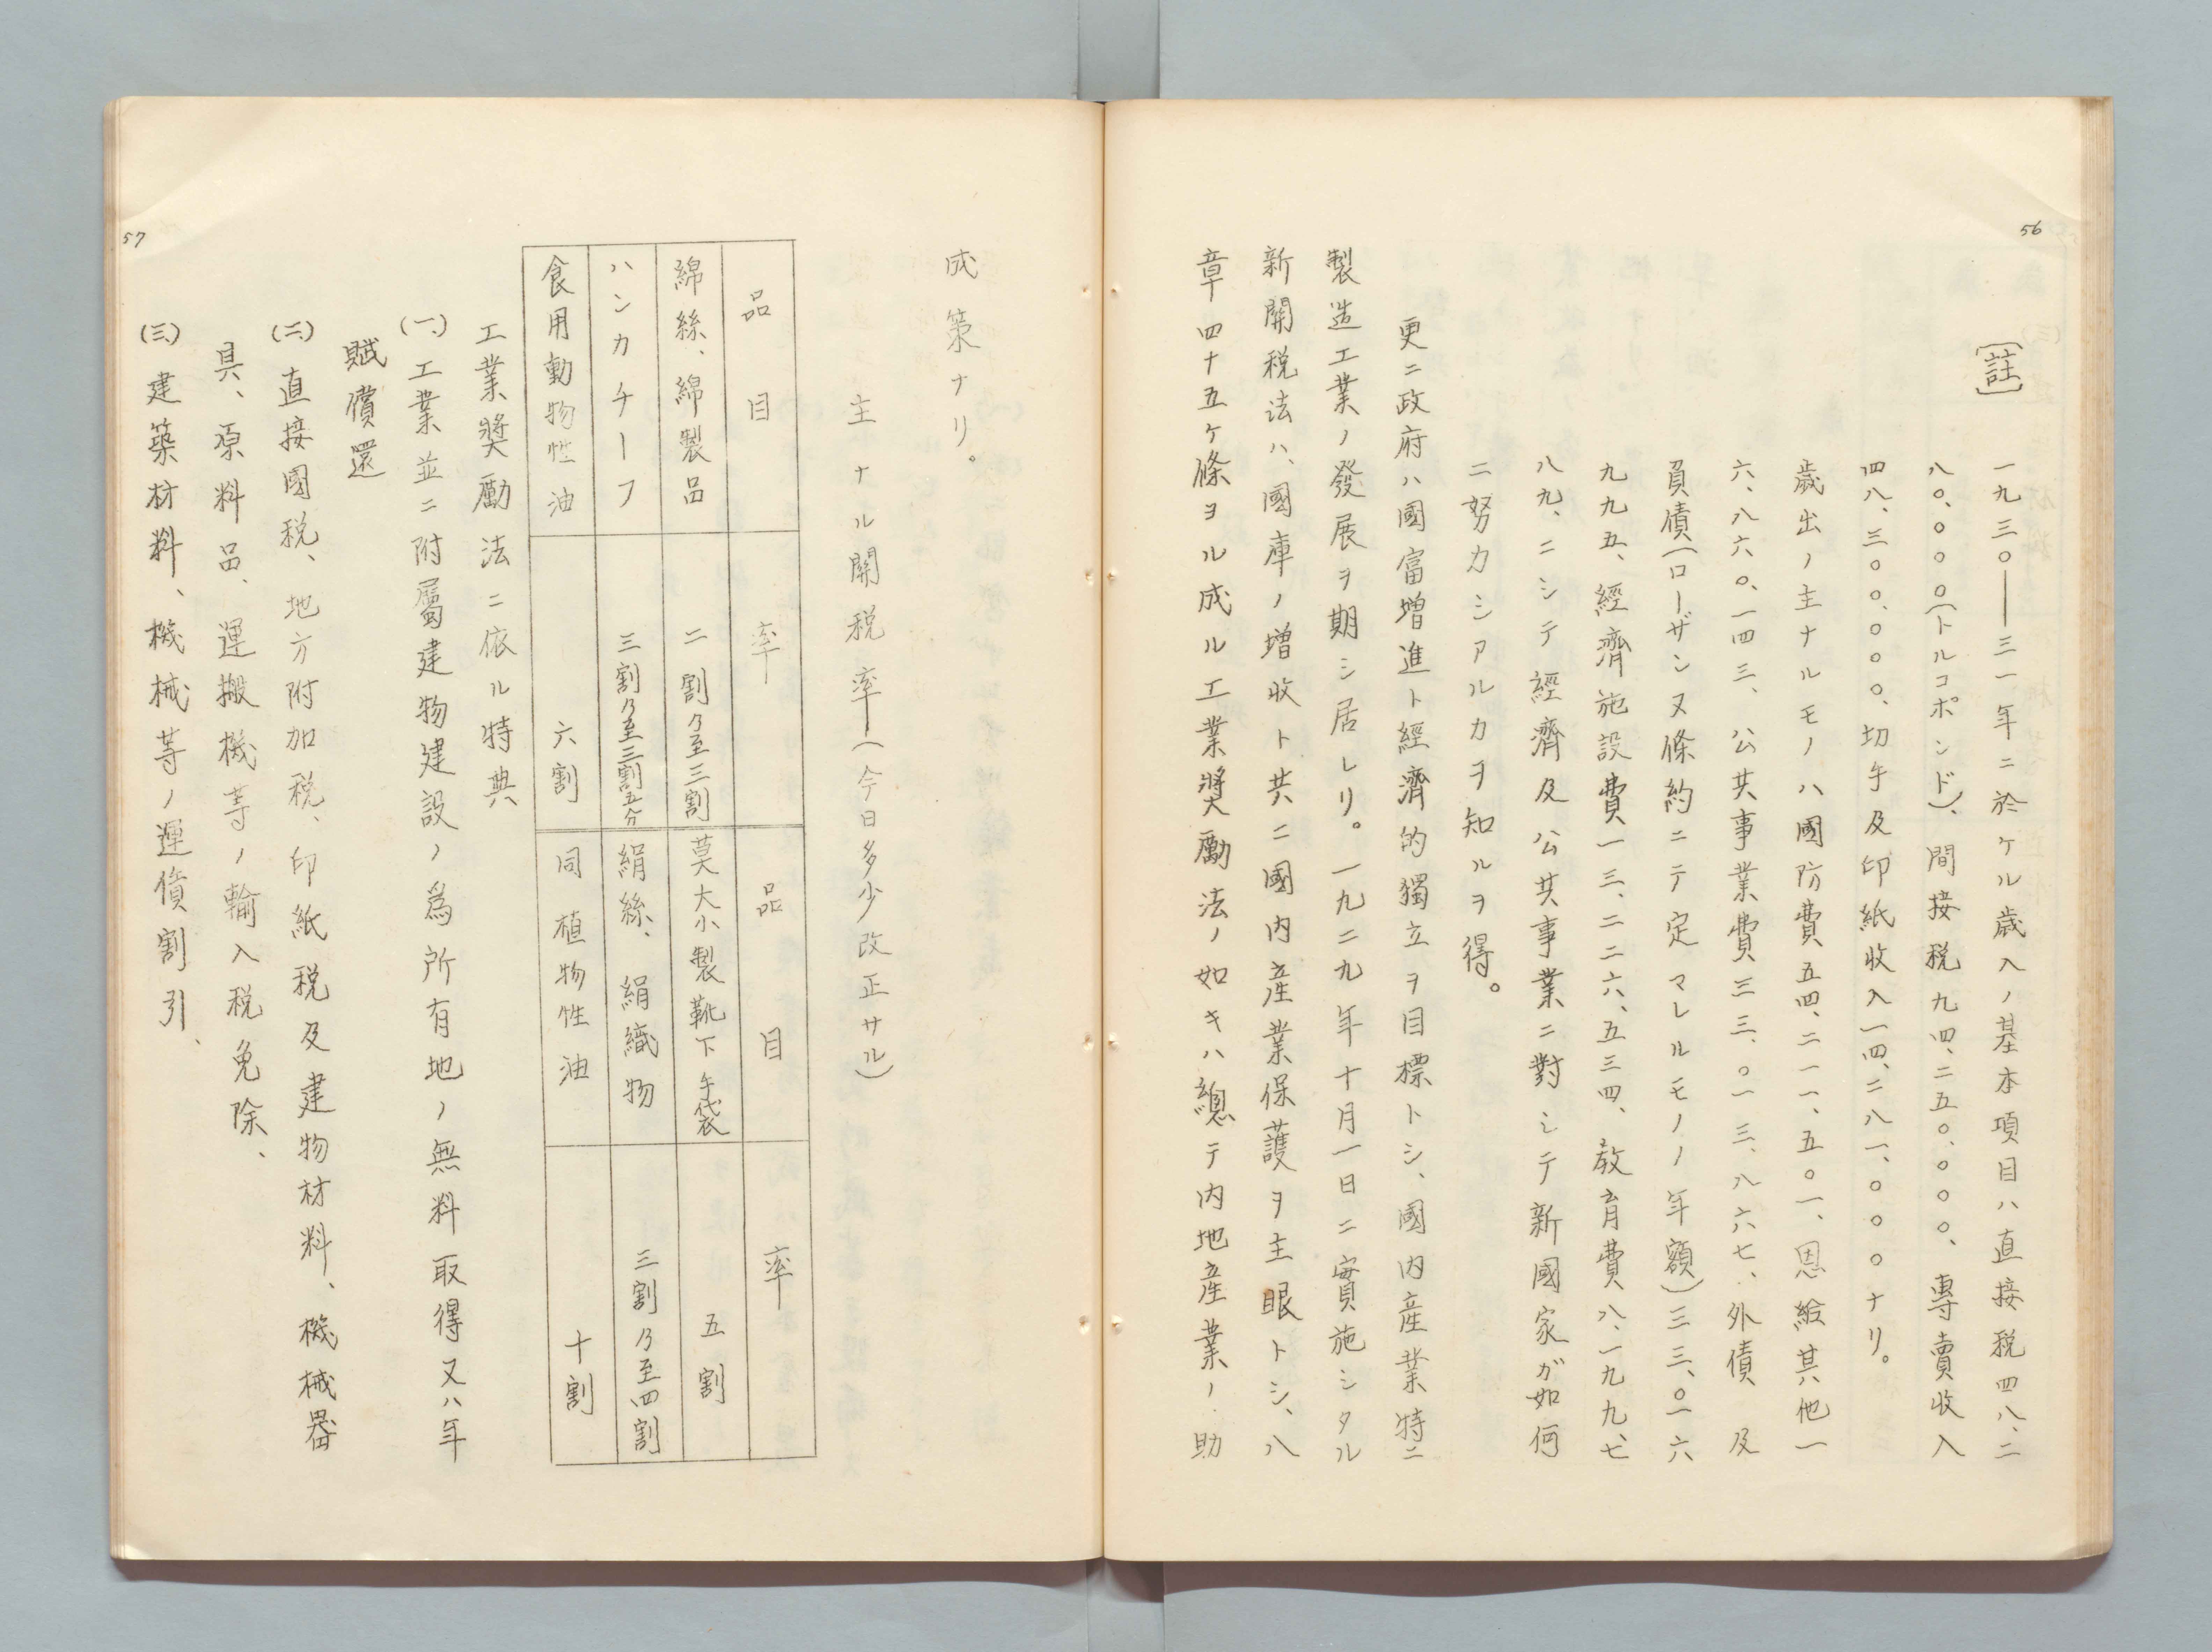 56
〔註〕
一九三〇――三一年ニ於ケル歳入ノ基本項目ハ直接税四八、二
八〇、〇〇〇(トルコポンド)、間接税九四、二五〇、〇〇〇、專賣收入
四八、三〇〇、〇〇〇、切手及印紙收入一四、二八一、〇〇〇ナリ。
歳出ノ主ナルモノハ國防費五四、二一一、五〇一、恩給其他一
六、八六〇、一四三、公共事業費三三、〇一三、八六七、外債及
負債(ローザンヌ條約ニテ定マレルモノノ年額)三三、〇一六
九九五、經濟施設費一三、二二六、五三四、教育費八、一九九、七
八九、ニシテ經濟及公共事業ニ對シテ新國家ガ如何
ニ努力シアルカヲ知ルヲ得。
更ニ政府ハ國富增進ト經濟的獨立ヲ目標トシ、國内産業特ニ
製造工業ノ發展ヲ期シ居レリ。一九二九年十月一日ニ實施シタル
新関税法ハ、國庫ノ增收ト共ニ國内産業保護ヲ主眼トシ、八
章四十五ケ條ヨル成ル工業奬勵法ノ如キハ總テ内地産業ノ助
成策ナリ。
主ナル関税率―(今日多少改正サル)
品目 率 品目 率
綿絲、綿製品 二割乃至三割 莫大小製靴下手袋 五割
ハンカチーフ 三割乃至三割五分 絹絲、絹織物 三割乃至四割
食用動物性油 六割 同植物性油 十割
工業奬勵法ニ依ル特典
(一)工業並ニ附屬建物建設ノ爲所有地ノ無料取得又ハ年
賦償還
(二)直接國税、地方附加税、印紙税及建物材料、機械器
具、原料品、運搬機等ノ輸入税免除、
(三)建築材料、機械等ノ運債割引、
57